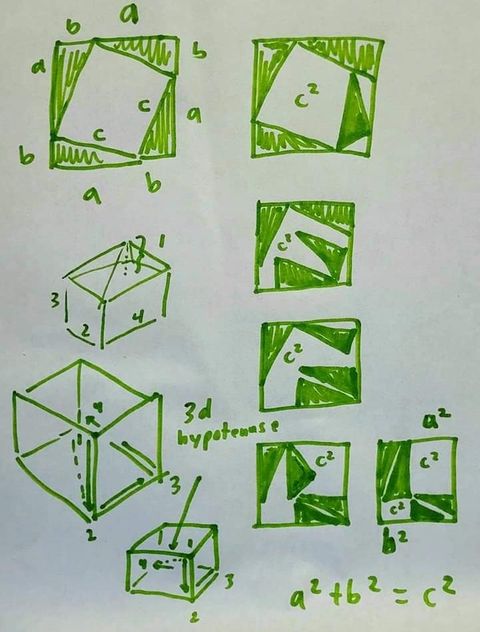 b a
a b
c c a
b
a b
c²
c²
1
3
2 4
c²
4
3d
hypotenuse
3
2
c²
a²
c²
c²
b²
4
3
2
a² + b² = c²